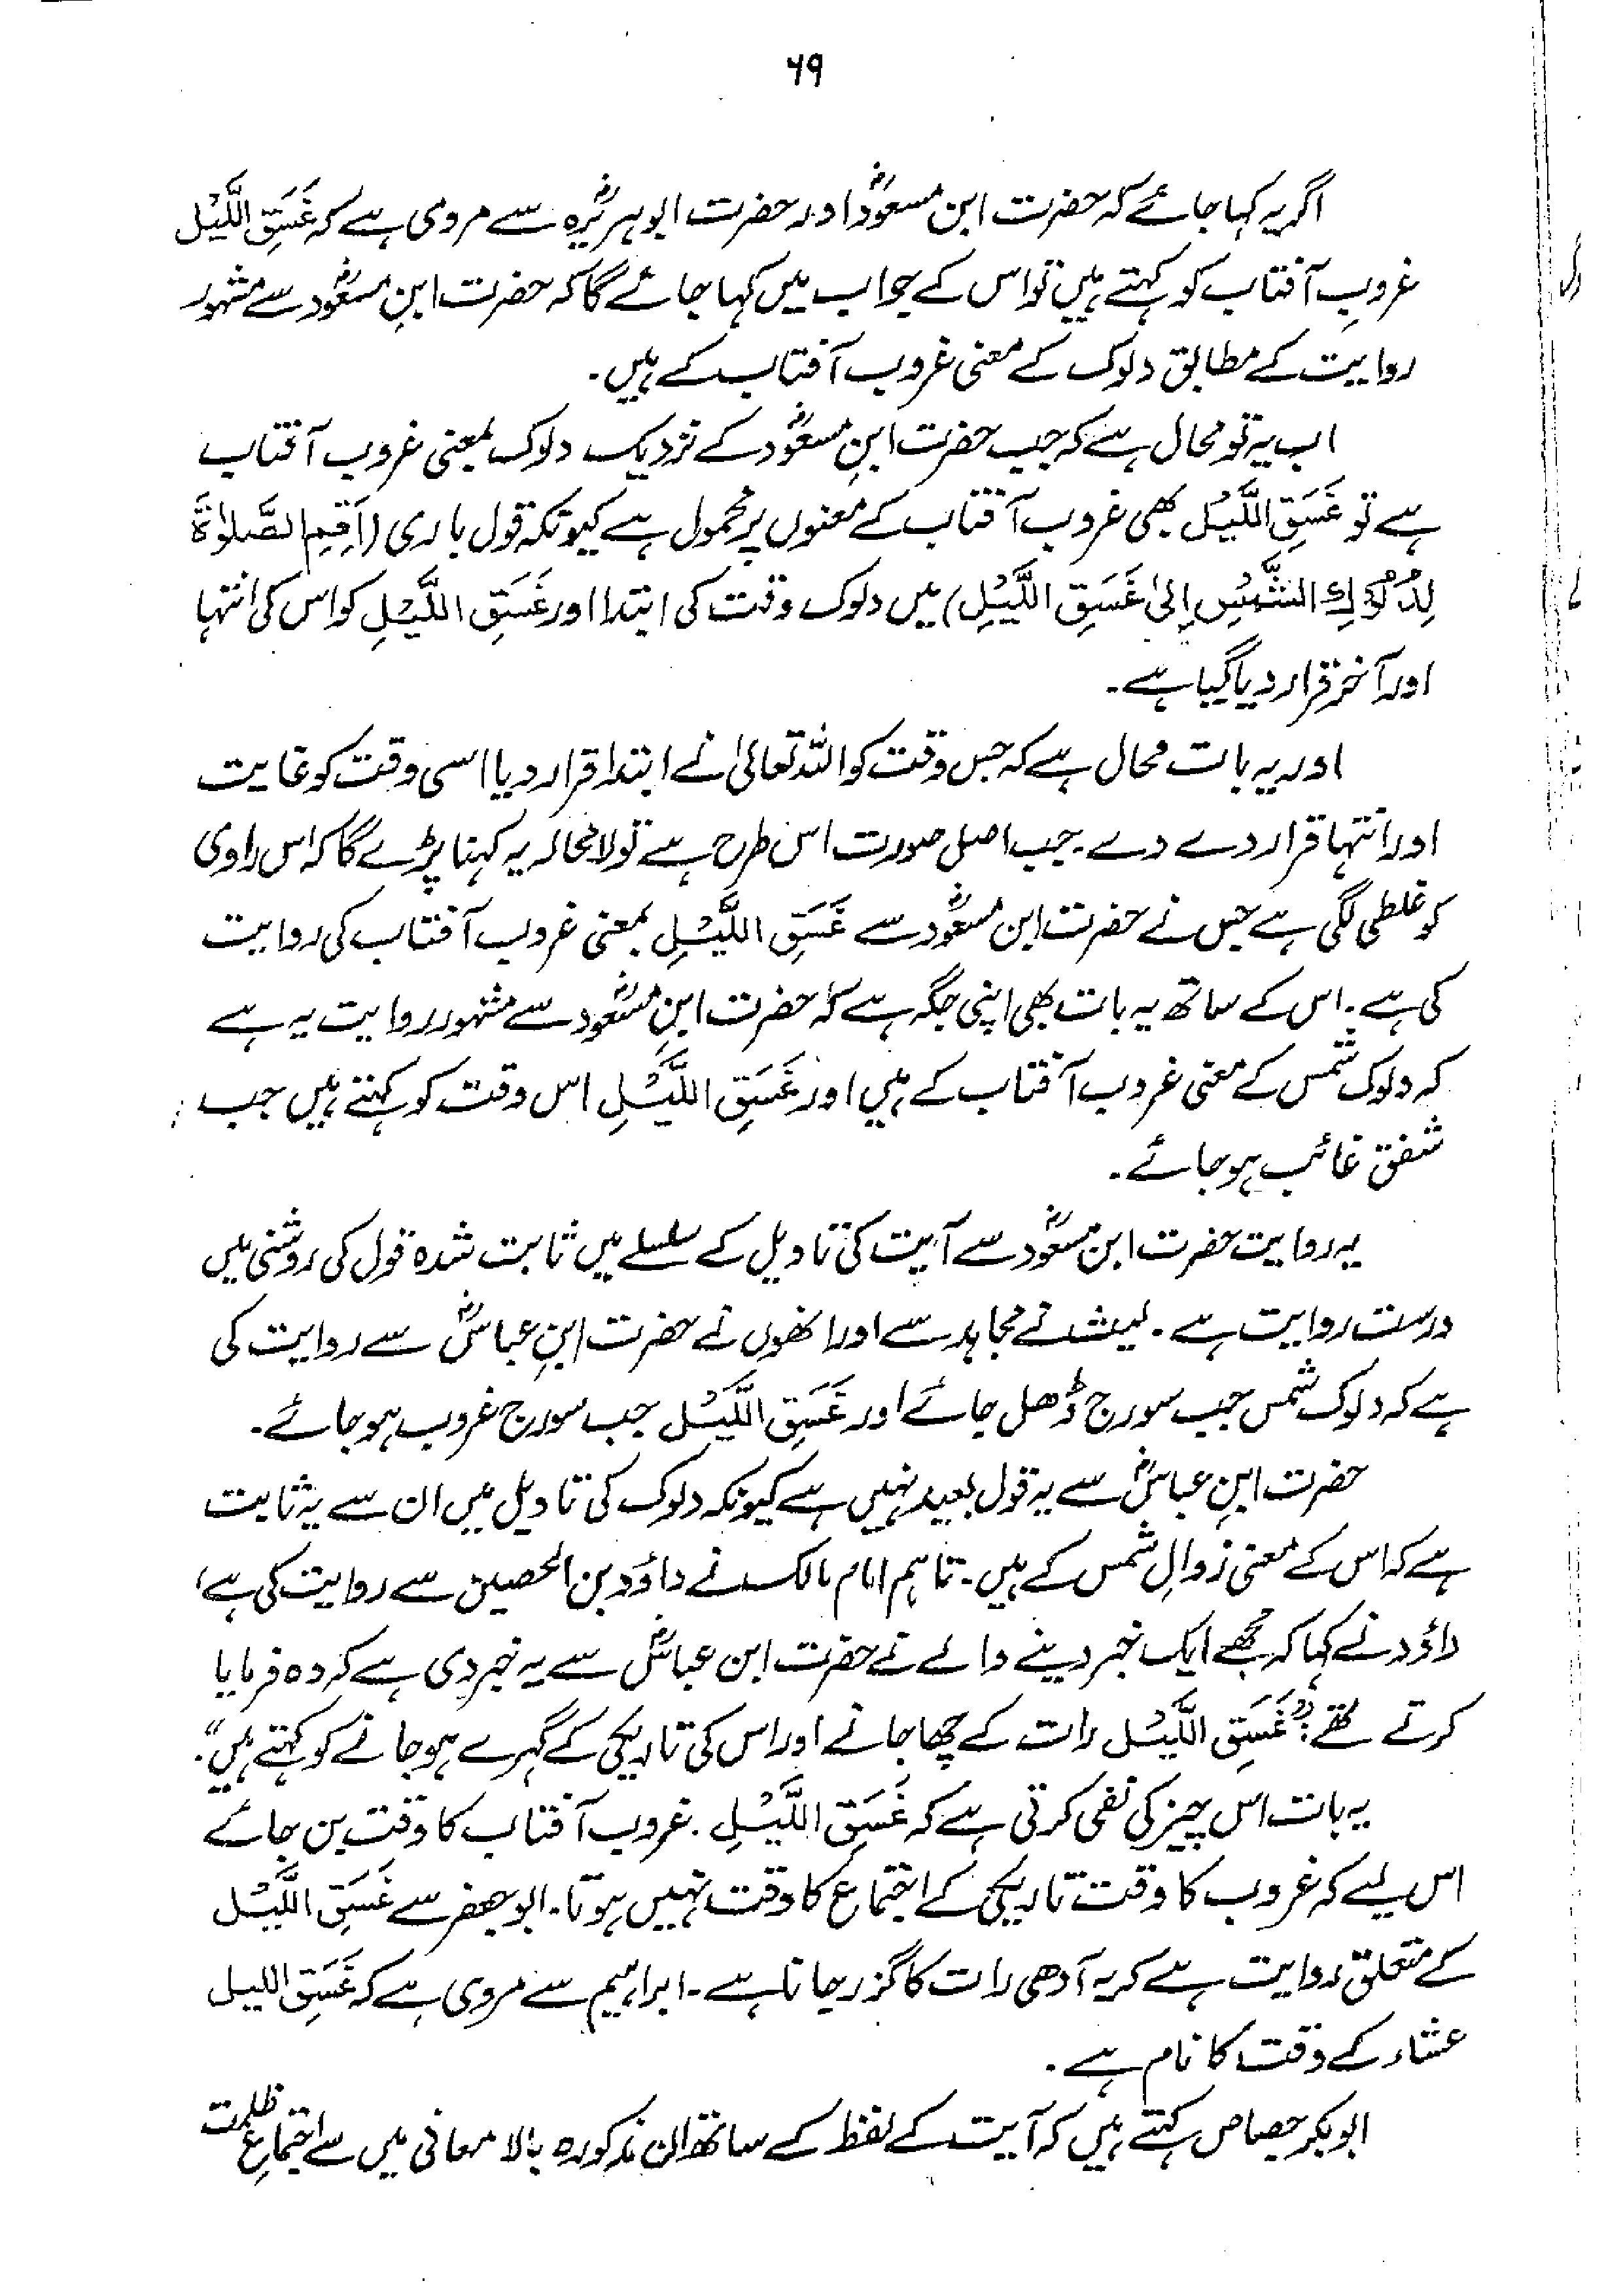 ۶۹
اگر یہ کہا جائے کہ حضرت ابن مسعودؓ اور حضرت ابوہریرہؓ سے مروی ہے کہ غَسَقِ اللَّیْل
غروبِ آفتاب کو کہتے ہیں تو اس کے جواب میں کہا جائے گا کہ حضرت ابنِ مسعودؓ سے مشہور
روایت کے مطابق دلوک کے معنی غروب آفتاب کے ہیں۔
اب یہ تو محال ہے کہ جب حضرت ابنِ مسعودؓ کے نزدیک دلوک بمعنی غروب آفتاب
ہے تو غَسَقِ اللَّیْل بھی غروب آفتاب کے معنوں پر محمول ہے کیونکہ قول باری (اَقِمِ الصَّلٰوۃَ
لِدُلُوْكِ الشَّمْسِ اِلىٰ غَسَقِ اللَّیْلِ) میں دلوک وقت کی ابتدا اور غَسَقِ اللَّیْلِ کو اس کی انتہا
اور آخر قرار دیا گیا ہے۔
اور یہ بات محال ہے کہ جس وقت کو اللہ تعالیٰ نے ابتدا قرار دیا اسی وقت کو غایت
اور انتہا قرار دے دے۔ جب اصل صورت اس طرح ہے تو لامحالہ یہ کہنا پڑے گا کہ اس راوی
کو غلطی لگی ہے جس نے حضرت ابن مسعودؓ سے غَسَقِ اللَّیْلِ بمعنی غروب آفتاب کی روایت
کی ہے۔ اس کے ساتھ یہ بات بھی اپنی جگہ ہے کہ حضرت ابنِ مسعودؓ سے مشہور روایت یہ ہے
کہ دلوک شمس کے معنی غروب آفتاب کے ہیں اور غَسَقِ اللَّیْلِ اس وقت کو کہتے ہیں جب
شفق غائب ہو جائے۔
یہ روایت حضرت ابن مسعودؓ سے آیت کی تاویل کے سلسلے میں ثابت شدہ قول کی روشنی میں
درست روایت ہے۔ لیث نے مجاہد سے اور انھوں نے حضرت ابنِ عباسؓ سے روایت کی
ہے کہ دلوک شمس جب سورج ڈھل جائے اور غَسَقِ اللَّیْل جب سورج غروب ہو جائے۔
حضرت ابنِ عباسؓ سے یہ قول بعید نہیں ہے کیونکہ دلوک کی تاویل میں ان سے یہ ثابت
ہے کہ اس کے معنی زوالِ شمس کے ہیں۔ تاہم امام مالک نے داؤد بن الحصین سے روایت کی ہے،
داؤد نے کہا کہ مجھے ایک خبر دینے والے نے حضرت ابن عباسؓ سے یہ خبر دی ہے کہ وہ فرمایا
کرتے تھے: "غَسَقِ اللَّیْل رات کے چھا جانے اور اس کی تاریکی کے گہرے ہو جانے کو کہتے ہیں"۔
یہ بات اس چیز کی نفی کرتی ہے کہ غَسَقِ اللَّیْلِ۔ غروب آفتاب کا وقت بن جائے
اس لیے کہ غروب کا وقت تاریکی کے اجتماع کا وقت نہیں ہوتا۔ ابوجعفر سے غَسَقِ اللَّیْل
کے متعلق روایت ہے کہ یہ آدھی رات کا گزر جانا ہے۔ ابراہیم سے مروی ہے کہ غَسَقِ اللیل
عشاء کے وقت کا نام ہے۔
ابوبکر جصاص کہتے ہیں کہ آیت کے لفظ کے ساتھ ان مذکورہ بالا معانی میں سے اجتماعِ ظلمت